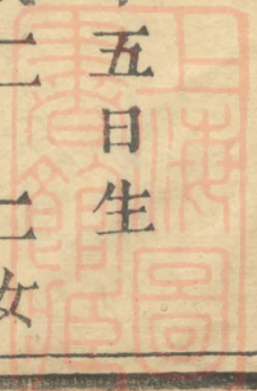 五日生
二 二女
上海圖
書館藏